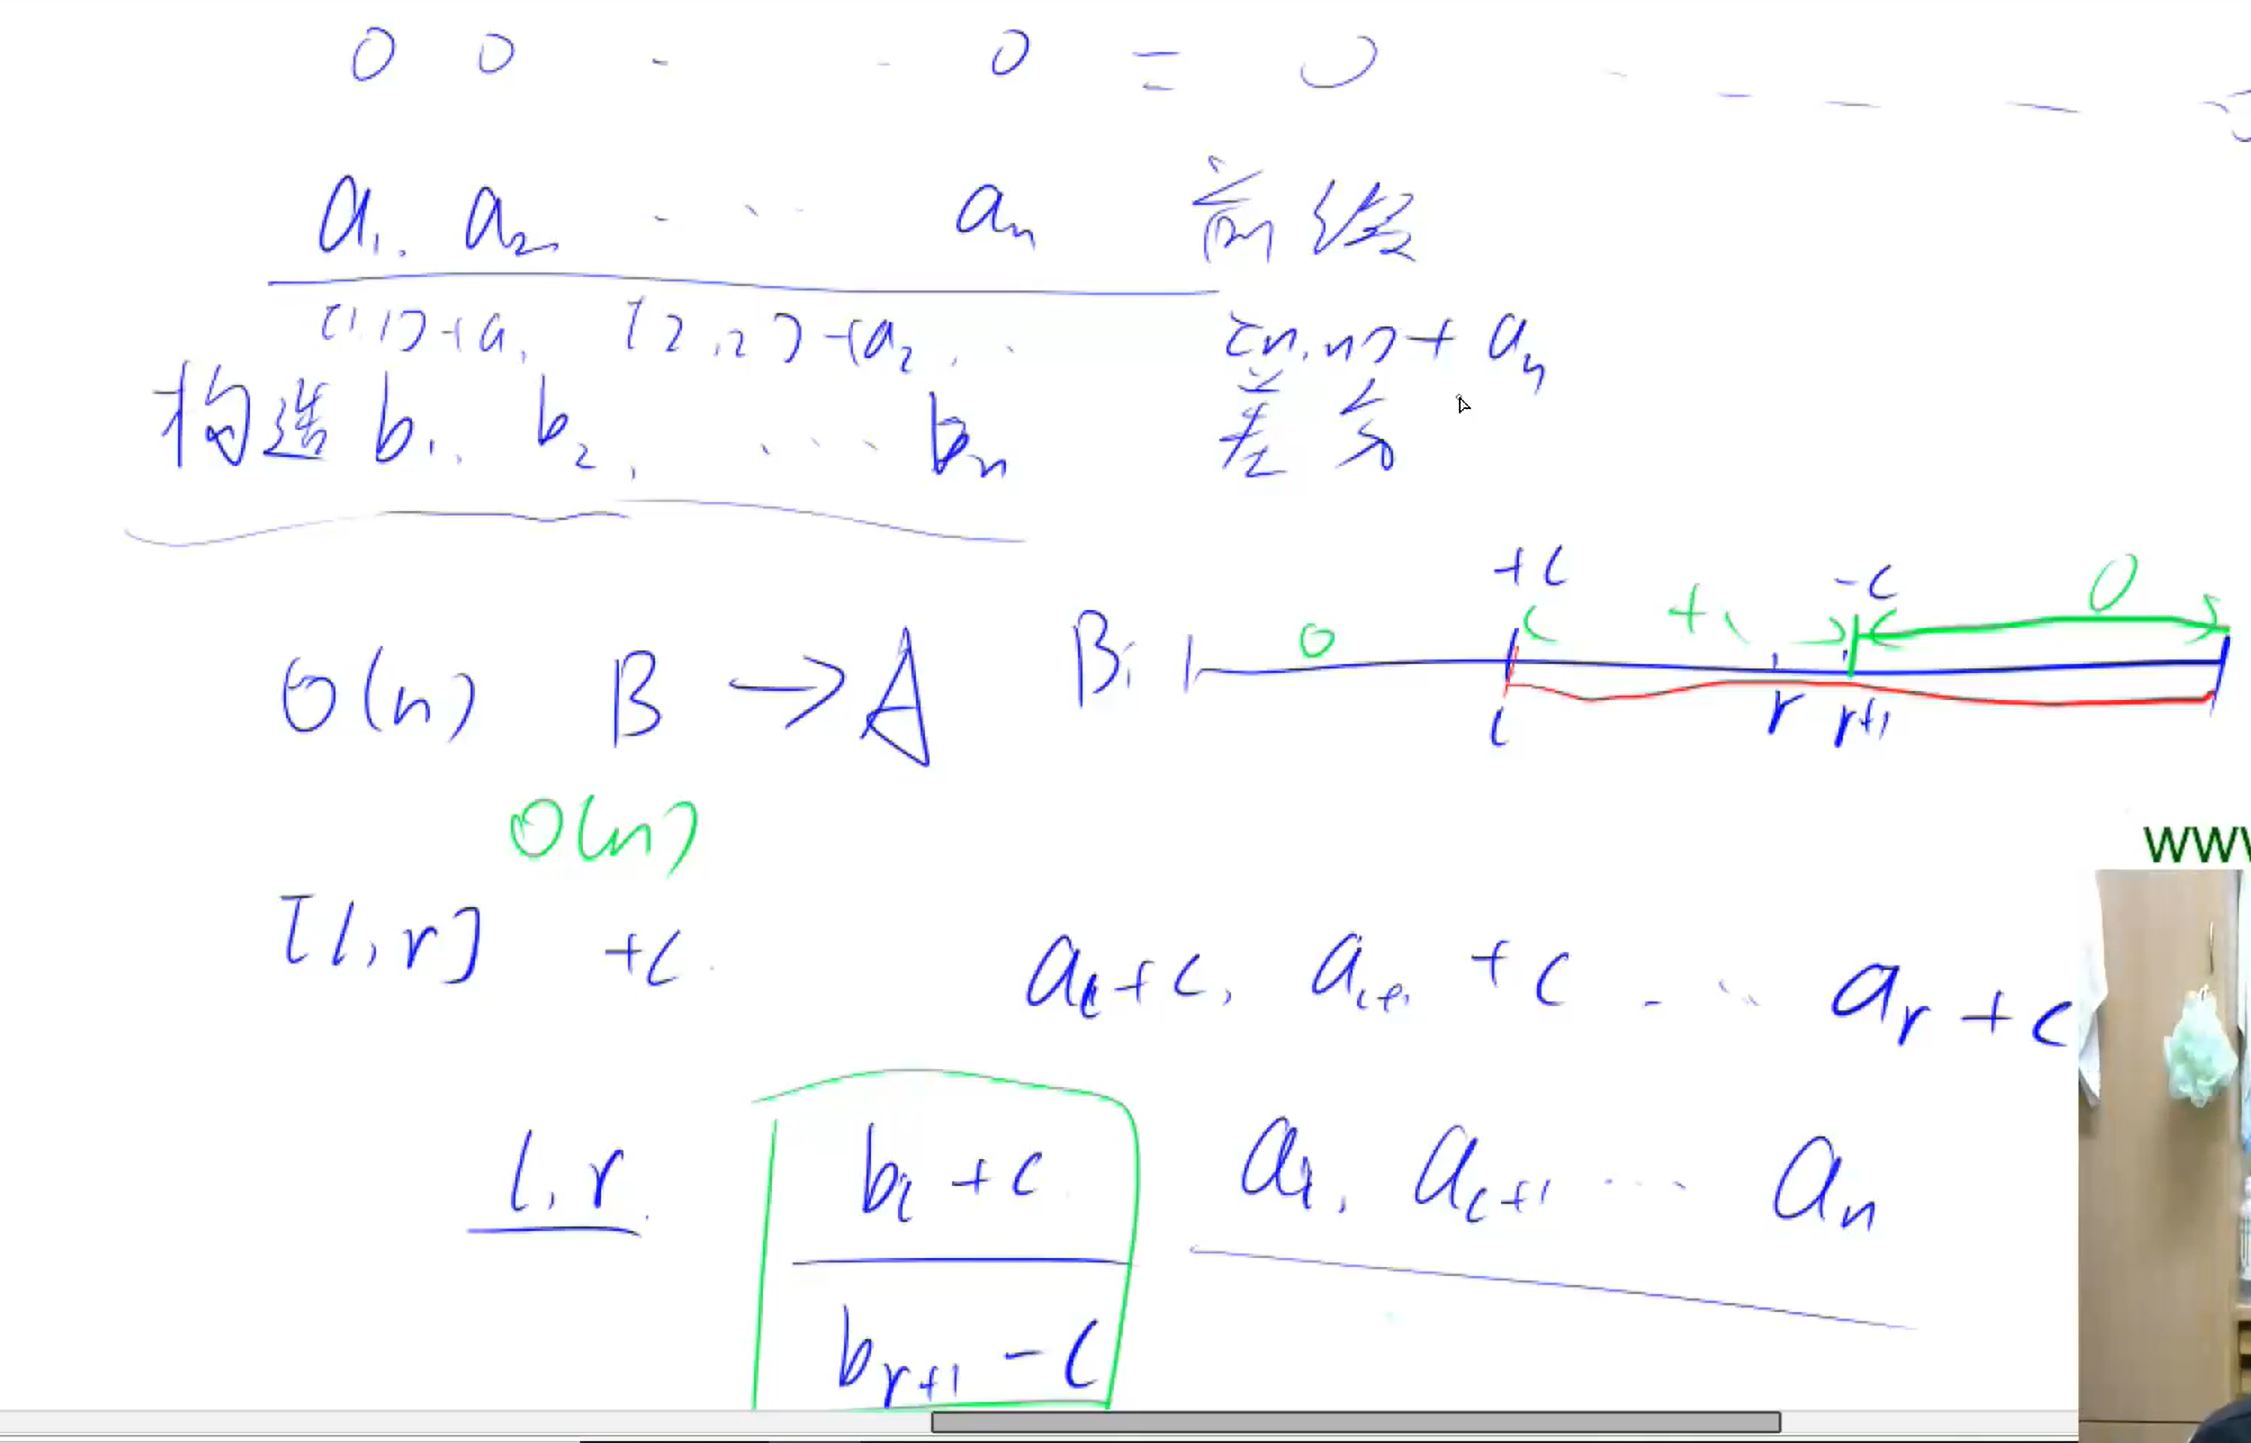 0 0 - - 0 = 0 - - - -
a₁, a₂ - ... aₙ 前缀
[1,1]+a₁ [2,2]+a₂ .. [n,n]+aₙ
构造 b₁, b₂, ... bₙ 差分
+c -c 0
O(n) B → A B: 0 +c
l r r+1
O(n)
[l,r] +c
a_l+c, a_{l+1}+c - ... a_r+c
l,r b_l+c a_l, a_{l+1} ... aₙ
b_{r+1}-c